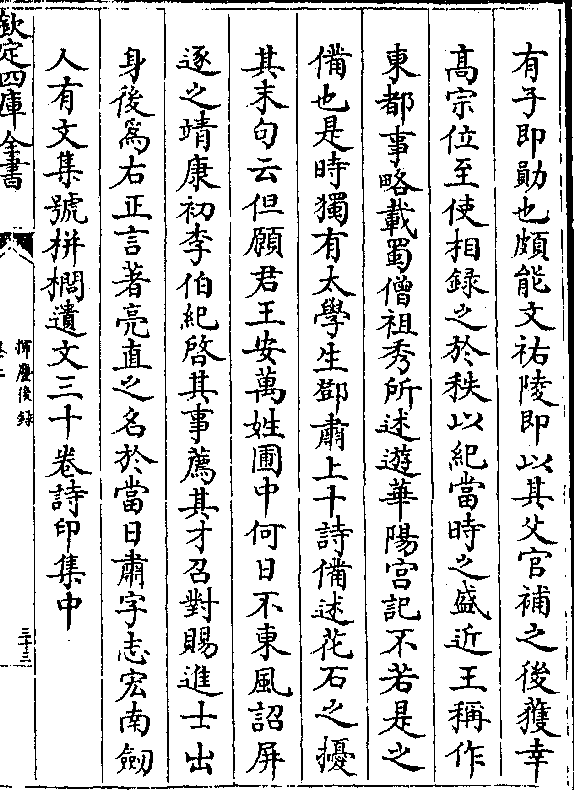 有子即勛也頗能文祐陵即以其父官補之後獲幸
髙宗位至使相録之於秩以紀當時之盛近王稱作
東都事略載蜀僧祖秀所述遊華陽宫記不若是之
備也是時獨有太學生鄧肅上十詩備述花石之擾
其末句云但願君王安萬姓圃中何日不東風詔屏
逐之靖康初李伯紀啓其事薦其才召對賜進士出
身後爲右正言著亮直之名於當日肅字志宏南劒
人有文集號栟櫚遺文三十卷詩印集中
欽定四庫全書
揮麈後録
卷二
三十三